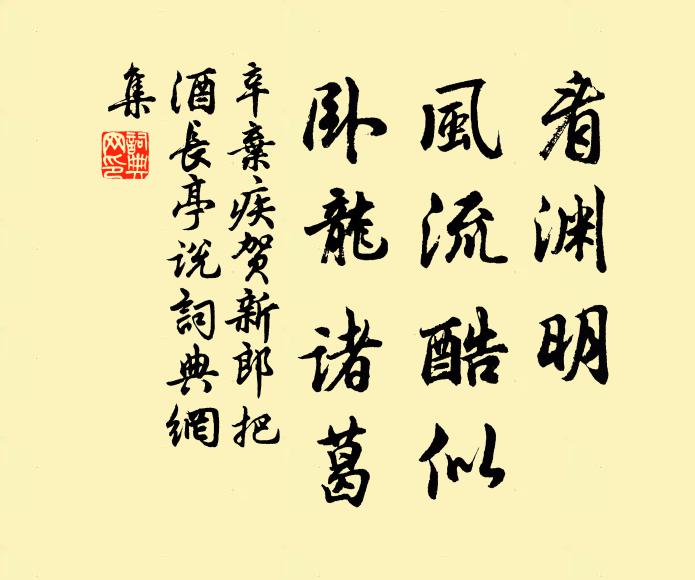 看渊明
風流酷似
卧龍诸葛
辛棄疾贺新郎把
酒長亭说詞典網
集
詞典网印